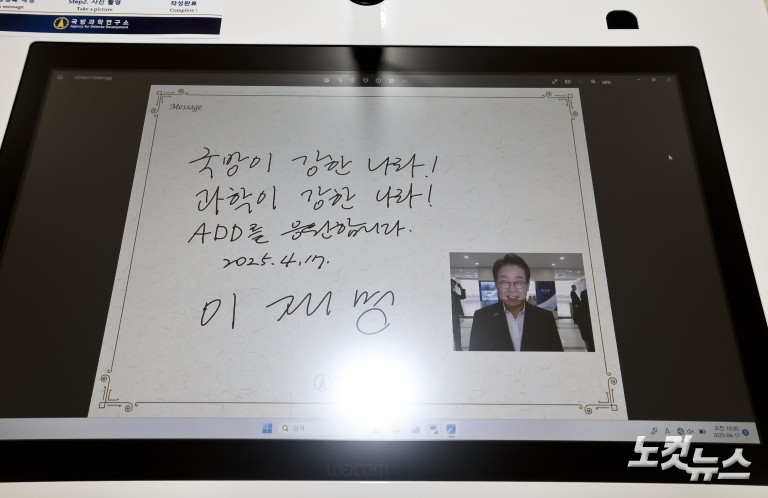 Step2. 사진 촬영
작성완료
message
Take a picture
Complete !
국방과학연구소
Agency for Defense Development
Message
국방이 강한 나라!
과학이 강한 나라!
ADD를 응원합니다.
2025.4.17.
이재명
검색
2025-04-17
wacom
노컷뉴스